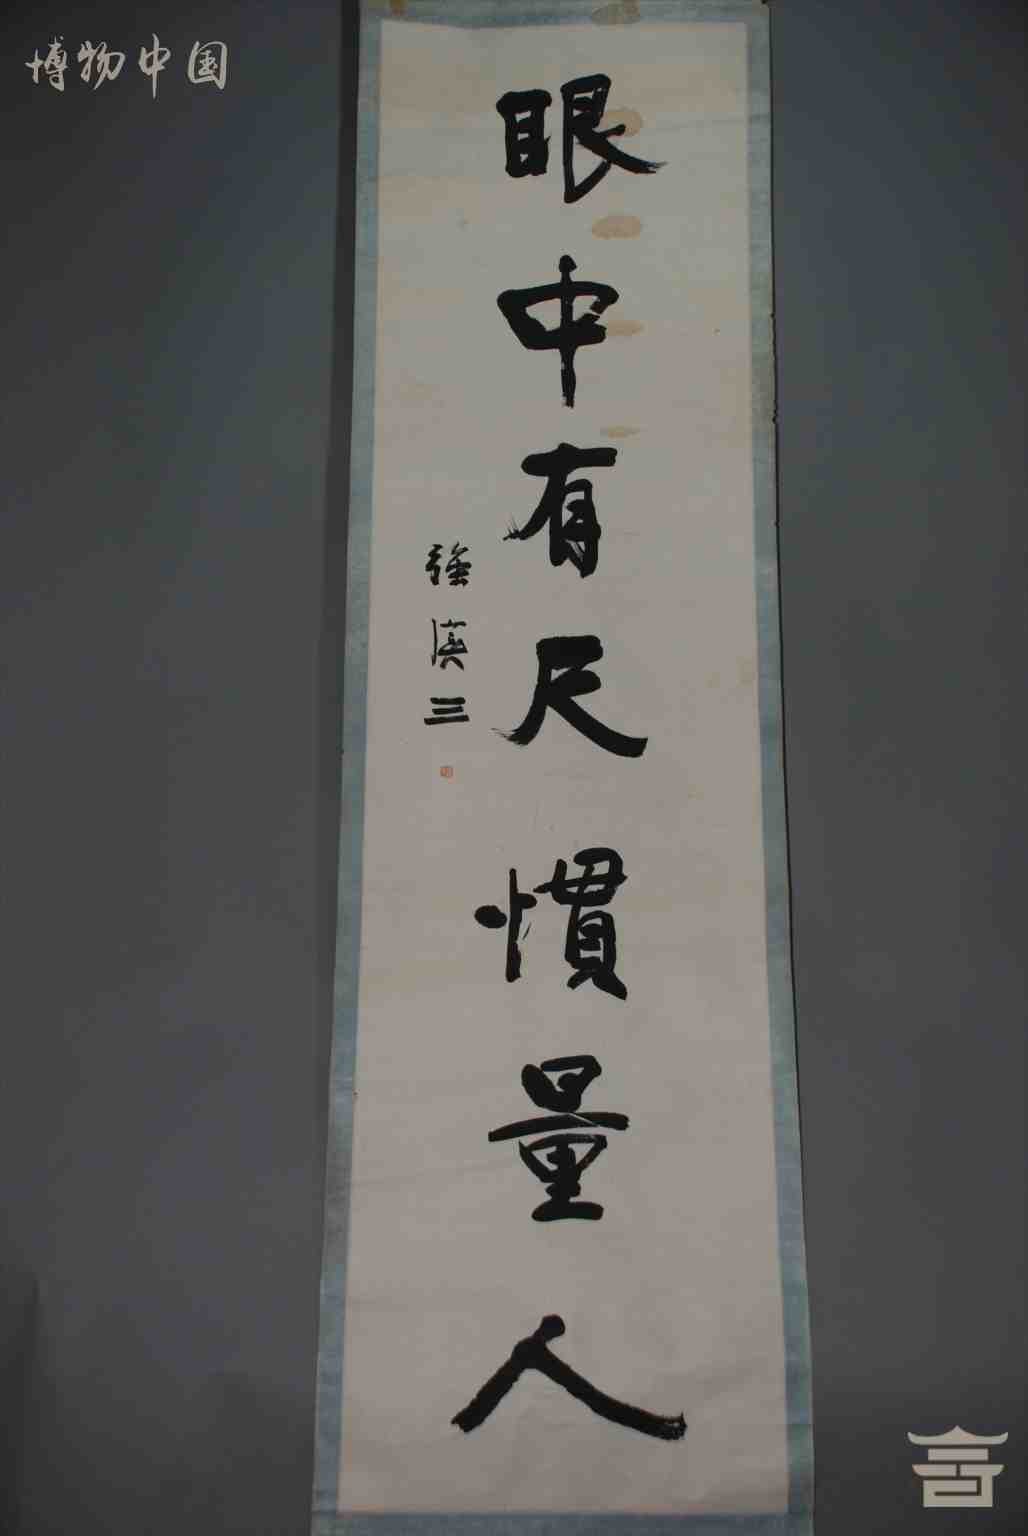 博物中国
眼中有尺慣量人
強漢三